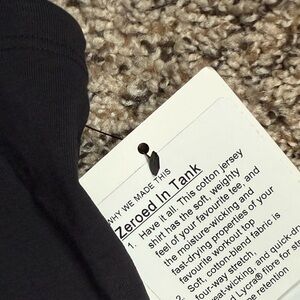 WHY WE MADE THIS
Zeroed In Tank
1. Have it all. This cotton jersey
shirt has the soft, weighty
feel of your favourite tee, and
the moisture-wicking and
fast-drying properties of your
favourite workout top
Soft, cotton-blend fabric is
four-way stretch,
sweat-wicking, and quick-dr
Lycra® fibre for str
retention